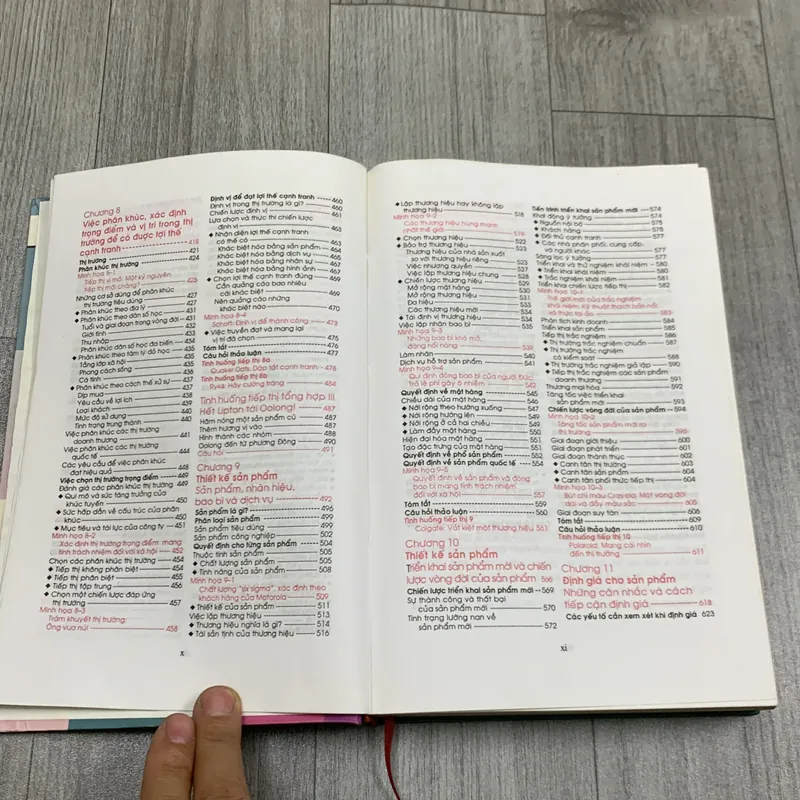 Chương 8
Việc phân khúc, xác định
trọng điểm và vị trí trong thị
trường để có được lợi thế
cạnh tranh 418
Thị trường 421
Phân khúc thị trường 424
Minh họa 8-1
Tiếp thị vi mô: Một kỷ nguyên
tiếp thị mới chăng? 426
Những cơ sở dùng để phân khúc
thị trường tiêu dùng 428
◆ Phân khúc theo địa lý 431
◆ Phân khúc theo dân số học 434
Tuổi và giai đoạn trong vòng đời 434
Giới tính 434
Thu nhập 435
Phân khúc dân số học đa biến 435
◆ Phân khúc theo tâm lý đồ học 435
Tầng lớp xã hội 435
Phong cách sống 435
Cá tính 437
◆ Phân khúc theo cách thế xử sự 437
Dịp mua 438
Yêu cầu về lợi ích 438
Loại khách 440
Mức độ sử dụng 440
Tình trạng trung thành 440
Việc phân khúc các thị trường
doanh thương 441
Việc phân khúc các thị trường
quốc tế 446
Các yêu cầu để việc phân khúc
đạt hiệu quả 448
Việc chọn thị trường trọng điểm 449
Đánh giá các phân khúc thị trường 449
◆ Qui mô và sức tăng trưởng của
khúc tuyến 450
◆ Sức hấp dẫn về cấu trúc của phân
khúc 450
◆ Mục tiêu và tài lực của công ty 451
Minh họa 8-2
Xác định thị trường trọng điểm mang
tính trách nhiệm đối với xã hội 452
Chọn các phân khúc thị trường 454
◆ Tiếp thị không phân biệt 454
◆ Tiếp thị phân biệt 454
◆ Tiếp thị tập trung 456
◆ Chọn một chiến lược đáp ứng
thị trường 457
Minh họa 8-3
Trám khuyết thị trường:
Ông vua núi 458
Định vị để đạt lợi thế cạnh tranh 460
Định vị trong thị trường là gì? 460
Chiến lược định vị 461
Lựa chọn và thực thi chiến lược
định vị 463
◆ Nhận diện lợi thế cạnh tranh
có thể có 463
Khác biệt hóa bằng sản phẩm 465
Khác biệt hóa bằng dịch vụ 466
Khác biệt hóa bằng nhân sự 467
Khác biệt hóa bằng hình ảnh 467
◆ Chọn lợi thế cạnh tranh đúng 468
Cần quảng cáo bao nhiêu
cái khác biệt 469
Nên quảng cáo những
khác biệt nào 470
Minh họa 8-4
Schott: Định vị để thành công 473
◆ Việc truyền đạt và mang lại
vị trí đã chọn 476
Tóm tắt 476
Câu hỏi thảo luận 477
Tình huống tiếp thị 8a
Quaker Oats: Dập tắt cạnh tranh 480
Tình huống tiếp thị 8b
Ryka: hãy cường tráng 484
Tình huống tiếp thị tổng hợp III
Hết Lipton tới Oolong! 487
Hâm nóng một sản phẩm cũ 487
Thêm hương vị vào 487
Hình thành các nhóm 488
Oolong đến từ phương Đông 490
Câu hỏi 491
Chương 9
Thiết kế sản phẩm
Sản phẩm, nhãn hiệu,
bao bì và dịch vụ 492
Sản phẩm là gì? 496
Phân loại sản phẩm 499
Sản phẩm tiêu dùng 499
Sản phẩm công nghiệp 502
Quyết định cho từng sản phẩm 504
Thuộc tính sản phẩm 505
◆ Chất lượng sản phẩm 505
◆ Tính năng của sản phẩm 508
Minh họa 9-1
Chất lượng "six sigma", xác định theo
khách hàng của Motorola 509
◆ Thiết kế của sản phẩm 511
Việc lập thương hiệu 513
◆ Thương hiệu nghĩa là gì? 514
◆ Tài sản tính của thương hiệu 516
x
◆ Lập thương hiệu hay không lập
thương hiệu 518
Minh họa 9-2
Các thương hiệu hùng mạnh
nhất thế giới 519
◆ Chọn thương hiệu 522
◆ Bảo trợ thương hiệu 522
Thương hiệu của nhà sản xuất
so với thương hiệu riêng 523
Việc nhượng quyền 527
Việc lập thương hiệu chung 528
◆ Chiến lược thương hiệu 530
Mở rộng mặt hàng 530
Mở rộng thương hiệu 531
Đa hiệu 533
Các thương hiệu mới 534
◆ Tái định vị thương hiệu 534
Việc lập nhãn bao bì 535
Minh họa 9-3
Những bao bì khó mở,
đáng nổi nóng 539
Làm nhãn 540
Dịch vụ hỗ trợ sản phẩm 541
Minh họa 9-4
Qui định đóng bao bì của người Đức:
Trả lệ phí gây ô nhiễm 542
Quyết định về mặt hàng 545
Chiều dài của mặt hàng 545
◆ Nới rộng theo hướng xuống 547
◆ Nới rộng hướng lên 549
◆ Nới rộng ở cả hai chiều 549
◆ Làm đầy mặt hàng 551
Hiện đại hóa mặt hàng 551
Tạo đặc trưng của mặt hàng 551
Quyết định về phổ sản phẩm 552
Quyết định về sản phẩm quốc tế 554
Minh họa 9-5
Quyết định về sản phẩm và đóng
bao bì mang tính trách nhiệm
đối với xã hội 557
Tóm tắt 559
Câu hỏi thảo luận 560
Tình huống tiếp thị 9
Colgate: Vắt kiệt một thương hiệu 561
Chương 10
Thiết kế sản phẩm
Triển khai sản phẩm mới và chiến
lược vòng đời của sản phẩm 566
Chiến lược triển khai sản phẩm mới 569
Sự thành công và thất bại
của sản phẩm mới 570
Tình trạng lưỡng nan về
sản phẩm mới 572
Tiến trình triển khai sản phẩm mới 574
Khơi động ý tưởng 574
◆ Nguồn nội bộ 575
◆ Khách hàng 575
◆ Đối thủ cạnh tranh 576
◆ Các nhà phân phối, cung cấp,
và nguồn khác 577
Sàng lọc ý tưởng 577
Triển khai và thử nghiệm khái niệm 580
◆ Triển khai khái niệm 580
◆ Trắc nghiệm khái niệm 581
Triển khai chiến lược tiếp thị 582
Minh họa 10-1
Thế giới mới của trắc nghiệm
khái niệm: Kỹ thuật thạch bản nổi
và thực tại ảo
Phân tích kinh doanh
Triển khai sản phẩm
Tiếp thị trắc nghiệm
◆ Thị trường trắc nghiệm chuẩn 587
◆ Thị trường trắc nghiệm
có kiểm soát
◆ Thị trường trắc nghiệm giả lập 590
◆ Tiếp thị trắc nghiệm các sản phẩm
doanh thương 591
Thương mại hóa 592
Tăng tốc việc triển khai
sản phẩm mới 593
Chiến lược vòng đời của sản phẩm 594
Minh họa 10-2
Tăng tốc sản phẩm mới ra
thị trường 595
Giai đoạn giới thiệu 600
Giai đoạn phát triển 601
Giai đoạn thành thục 602
◆ Canh tân thị trường 603
◆ Canh tân sản phẩm 604
◆ Canh tân phối thức tiếp thị 604
Minh họa 10-3
Bút chì màu Crayola: Một vòng đời
dài và đầy màu sắc 605
Giai đoạn suy tàn 606
Tóm tắt 609
Câu hỏi thảo luận 610
Tình huống tiếp thị 10
Polaroid: Mang cái nhìn
đến thị trường 611
Chương 11
Định giá cho sản phẩm
Những cân nhắc và cách
tiếp cận định giá 618
Các yếu tố cần xem xét khi định giá 623
xi